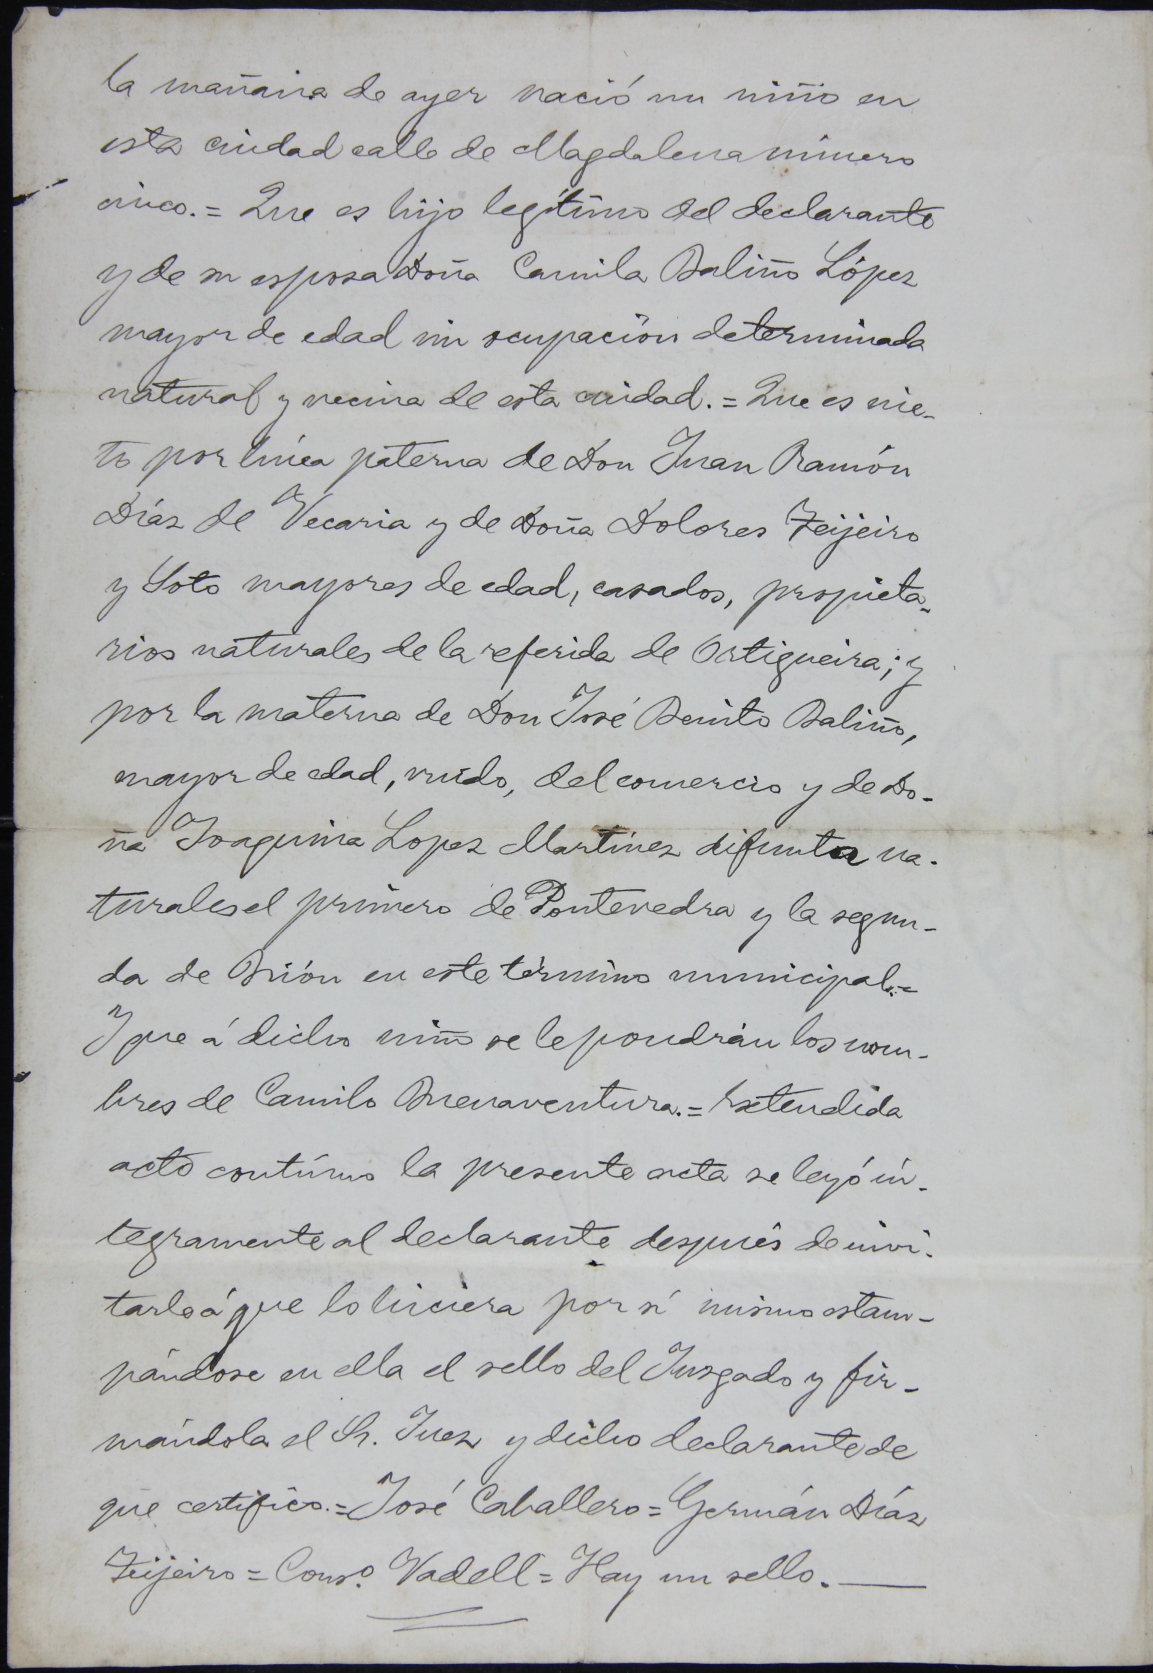 la mañana de ayer nació un niño en
esta ciudad calle de Magdalena número
cinco.= Que es hijo legítimo del declarante
y de su esposa Doña Camila Baliño López
mayor de edad sin ocupación determinada
natural y vecina de esta ciudad.= Que es nie-
to por línea paterna de Don Juan Ramón
Díaz de Vecaria y de Doña Dolores Teijeiro
y Soto mayores de edad, casados, propieta-
rios naturales de la referida de Ortigueira; y
por la materna de Don José Benito Baliño,
mayor de edad, viudo, del comercio y de Do-
ña Joaquina Lopez Martínez difunta na-
turales el primero de Pontevedra y la segun-
da de Brión en este término municipal.=
Y que á dicho niño se le pondrán los nom-
bres de Camilo Buenaventura.= Extendida
acto contínuo la presente acta se leyó ín-
tegramente al declarante después de invi-
tarle á que lo hiciera por sí mismo estam-
pándose en ella el sello del Juzgado y fir-
mándola el Sr. Juez y dicho declarante de
que certifico.= José Caballero = Germán Díaz
Teijeiro = Consº. Vadell = Hay un sello.